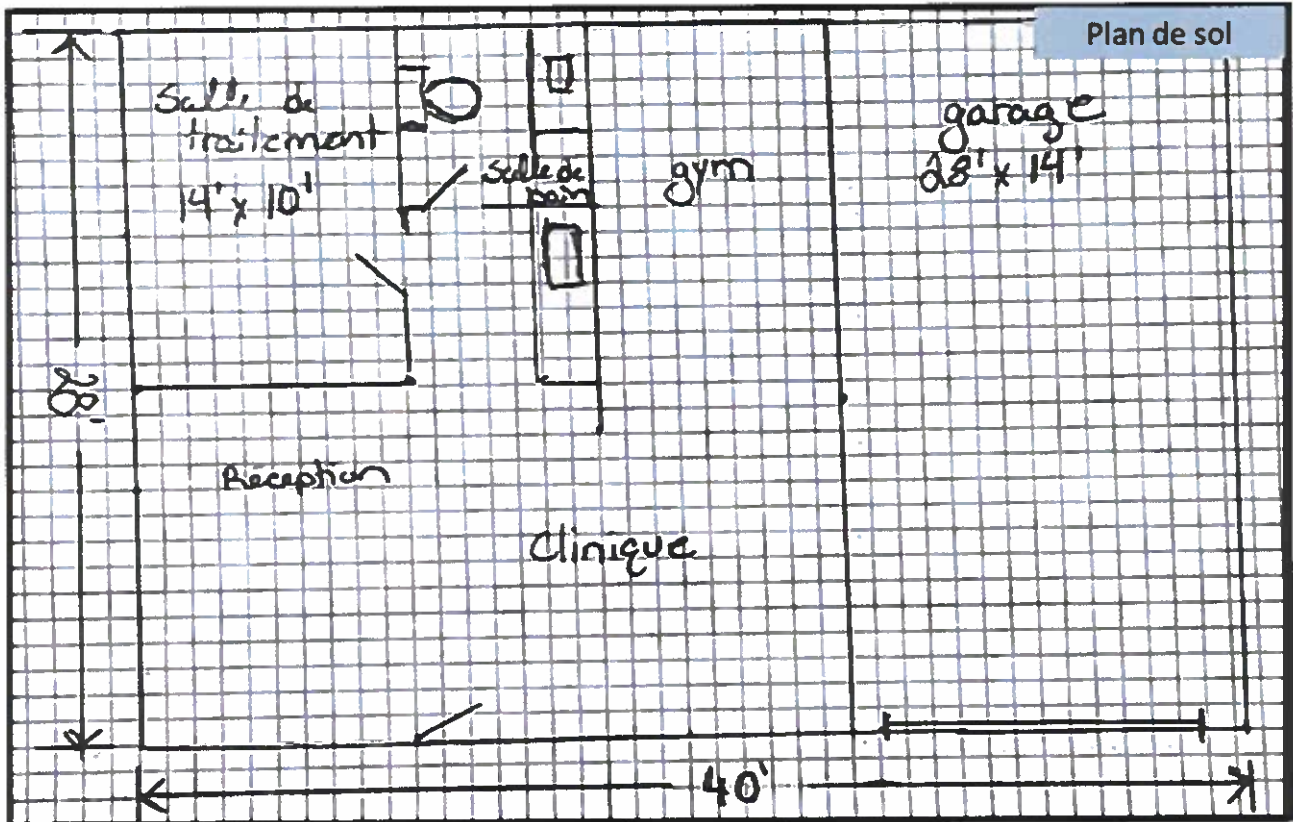 Plan de sol
Salle de
traitement
14' x 10'
Salle de
bain
gym
garage
28' x 14'
Réception
Clinique
40'